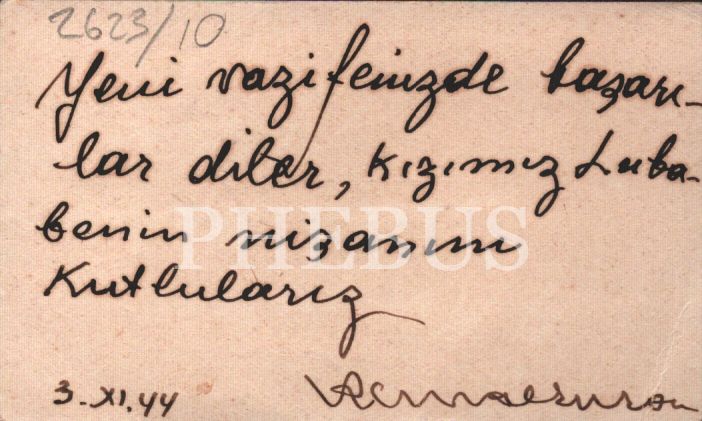 2623/10
Yeni vazifenizde başarı-
lar diler, kızımız Luba-
benin nişanını
Kutlularız
PHEBUS
3.XI.44